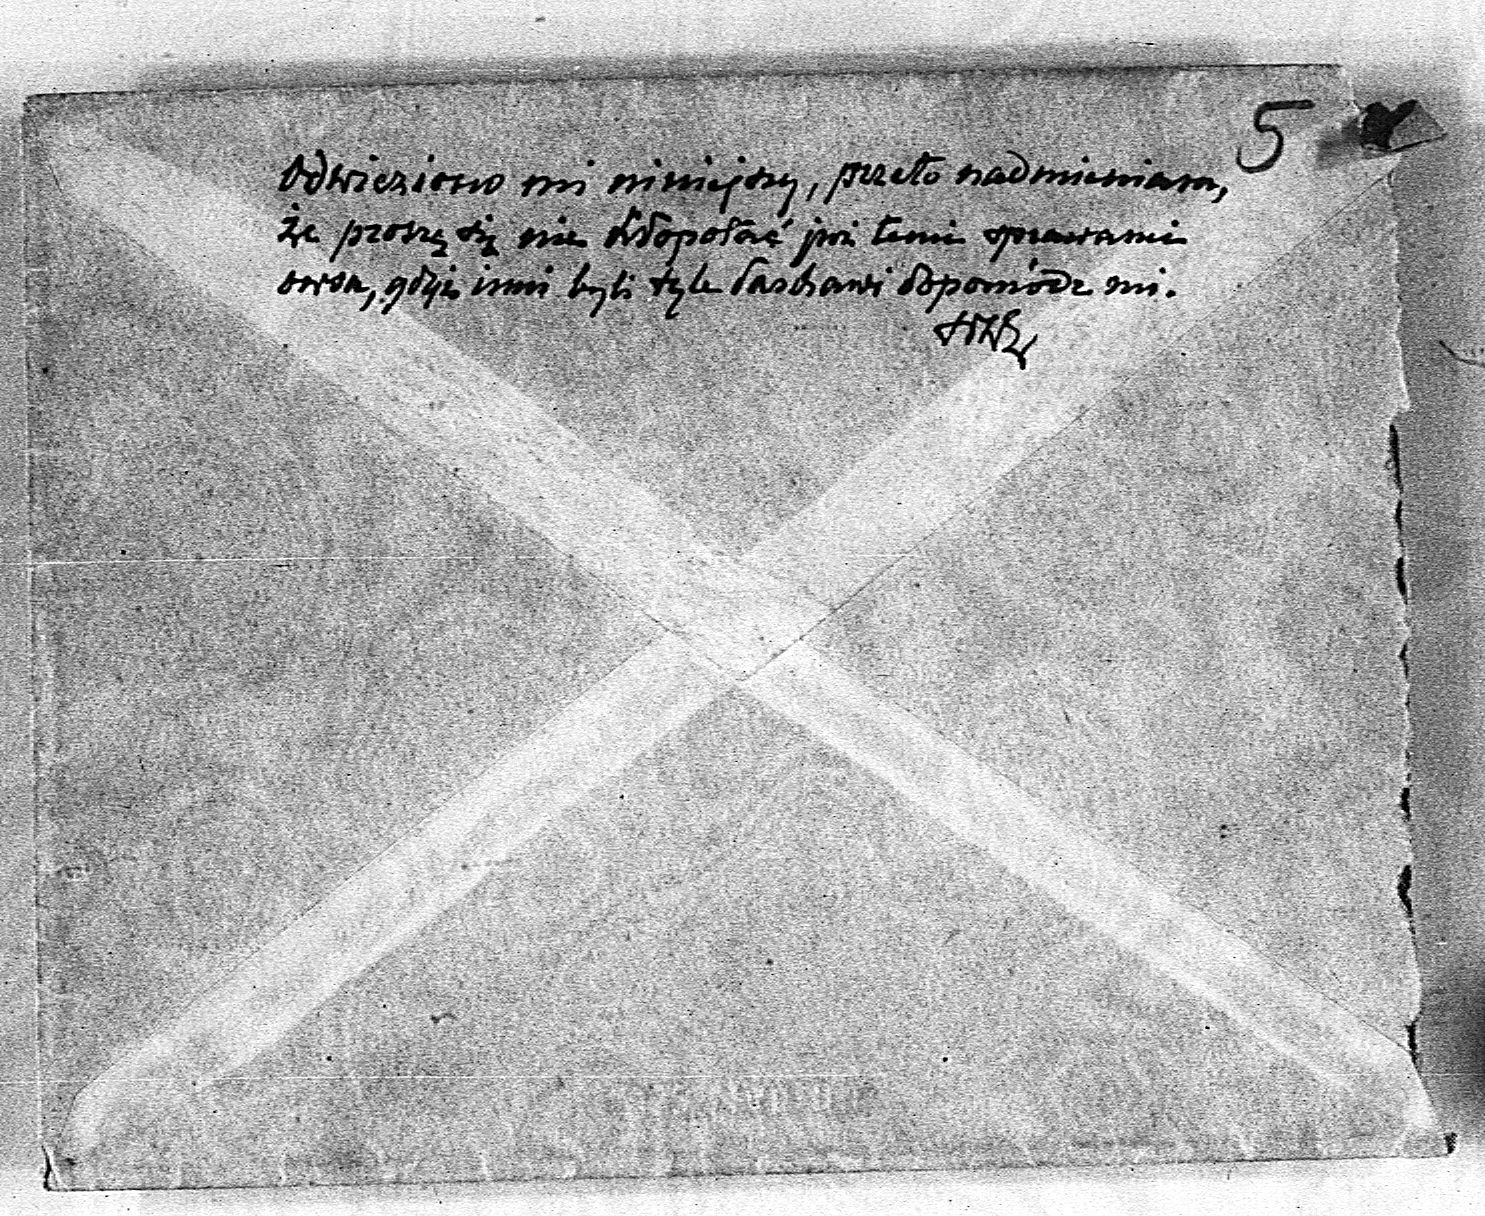 5
Odwieziono mi niniejszy, przeto nadmieniam,
że proszę się nie kłopotać już temi sprawami
gdyż inni byli tyle łaskawi dopomódz mi.